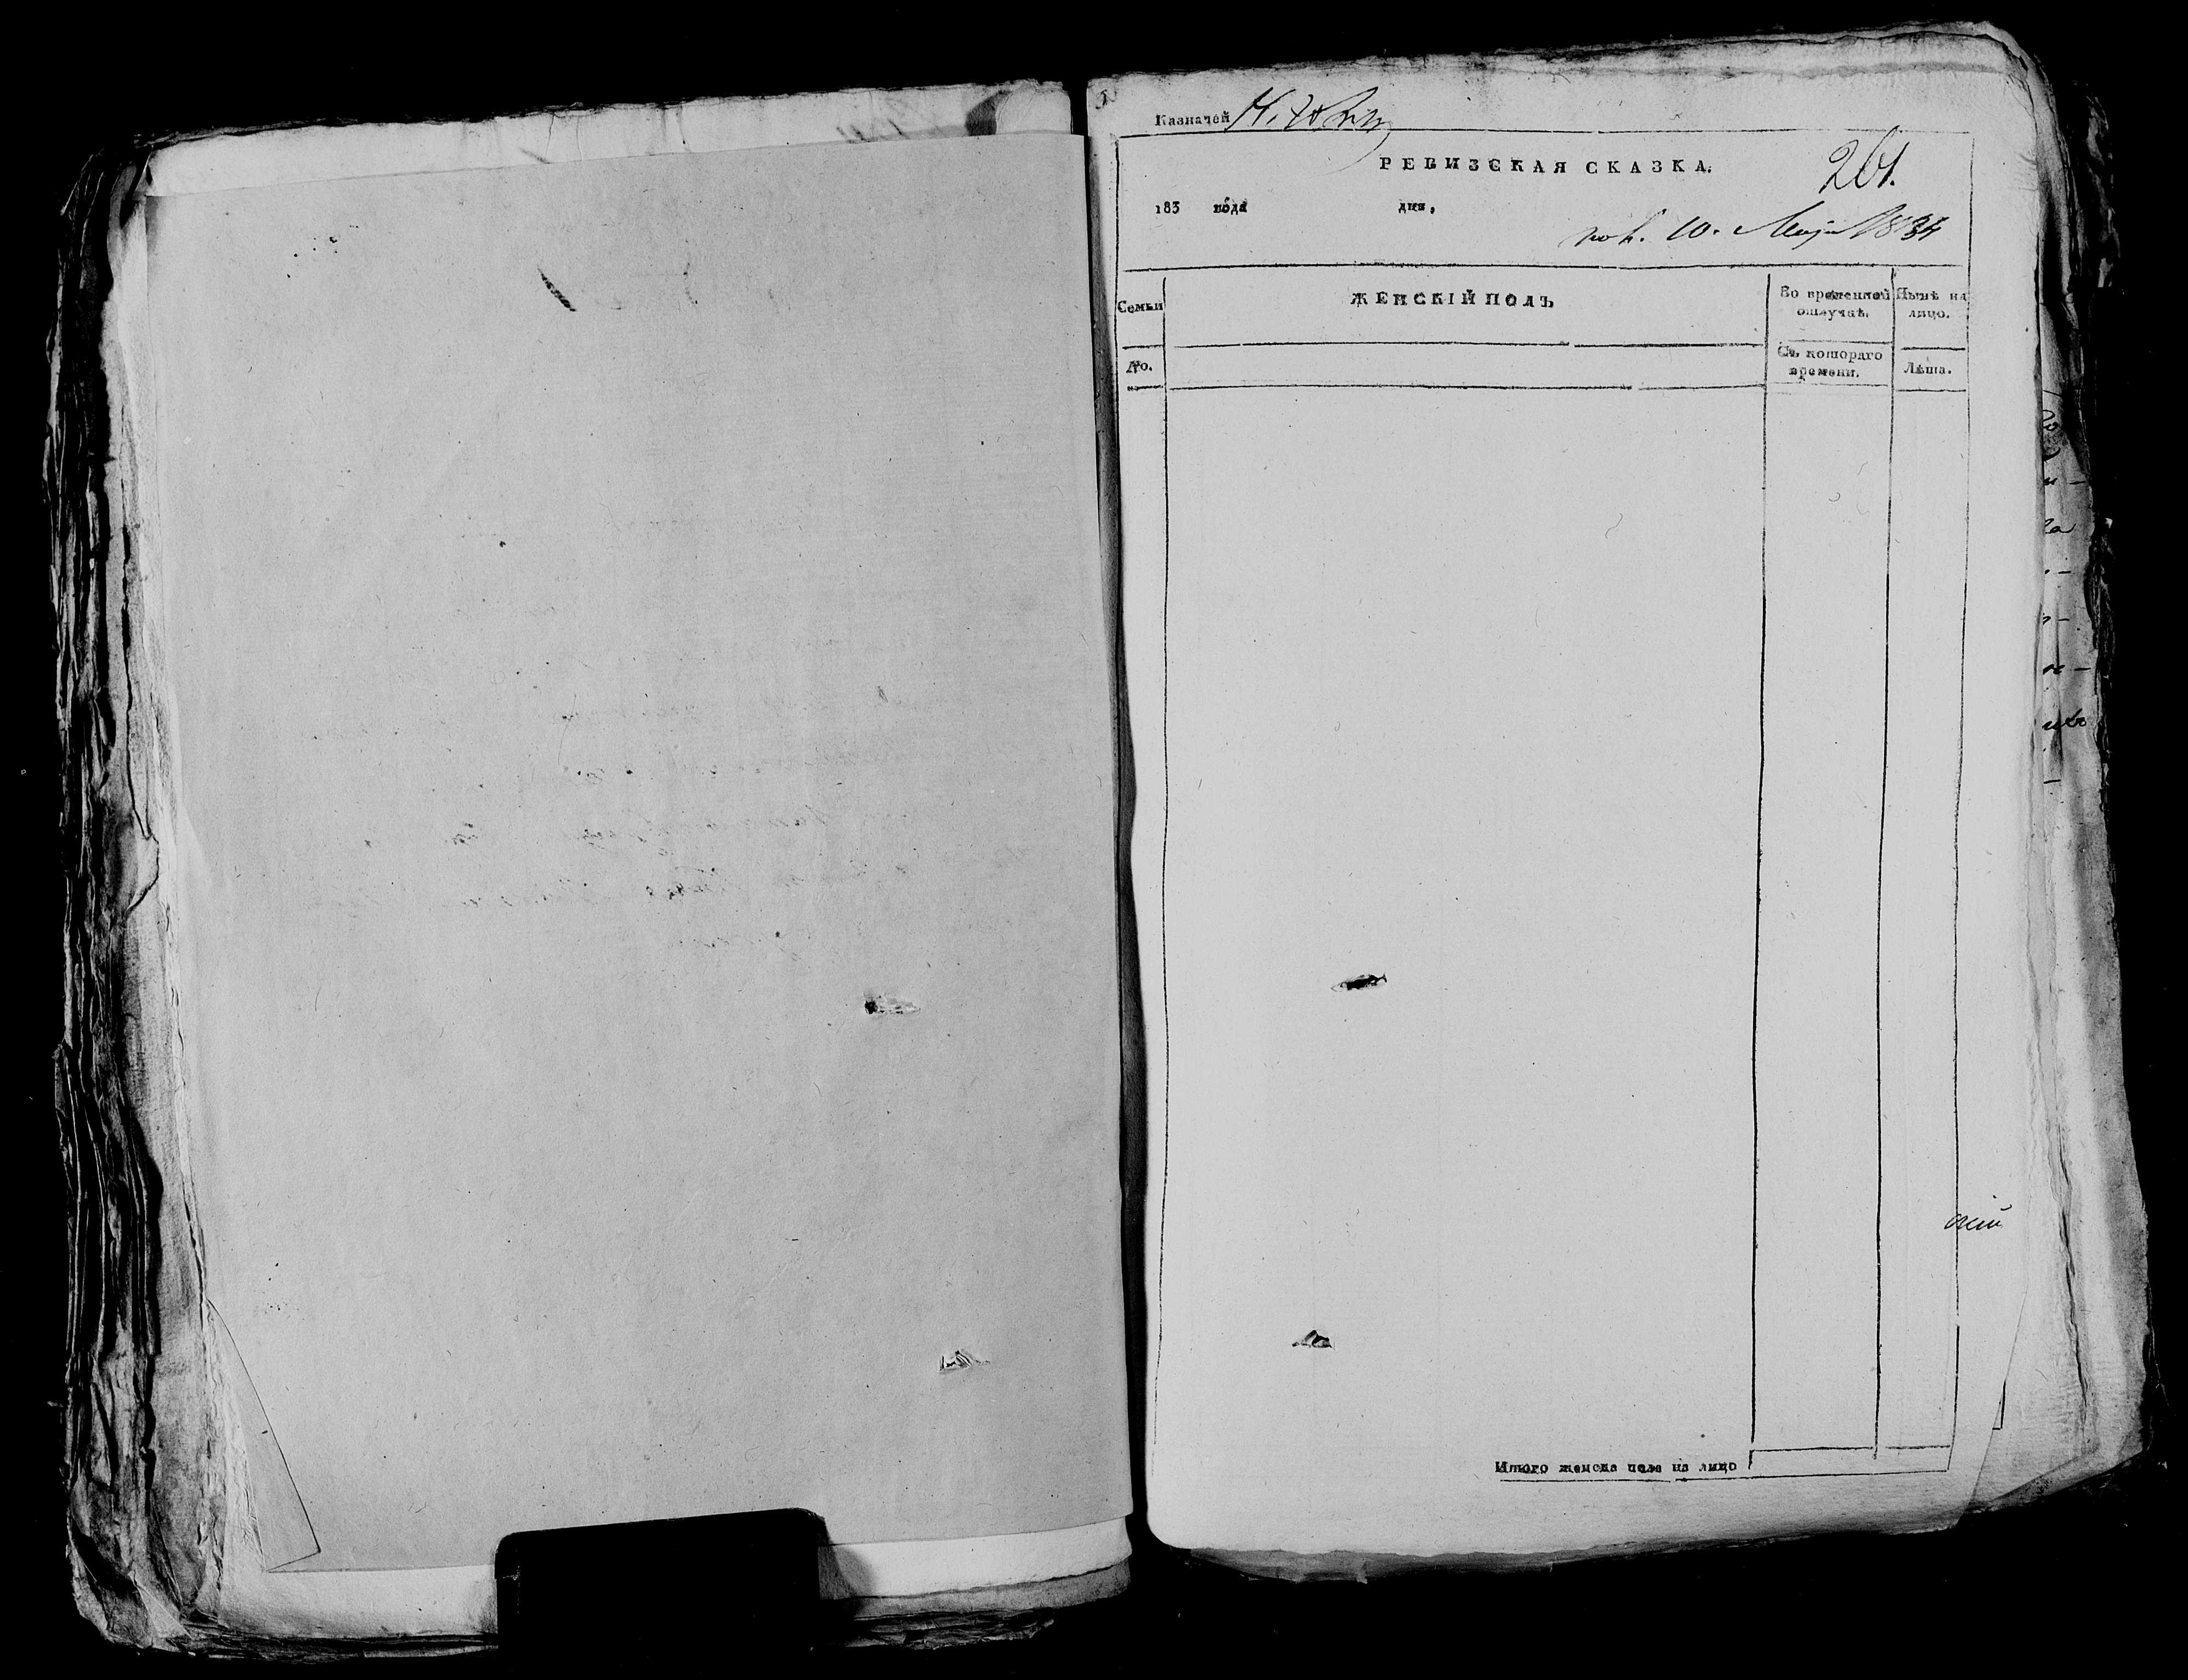 Казначей
РЕВИЗСКАЯ СКАЗКА.
261.
183 года дня,
10. 1834
Семьи
ЖЕНСКІЙ ПОЛЪ
Во временной отлучкѣ.
Нынѣ на лицо.
No.
Съ котораго времени.
Лѣта.
Итого женска пола на лицо